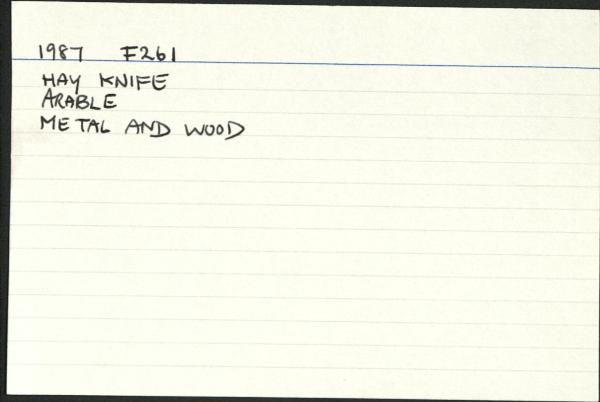 1987 F261
HAY KNIFE
ARABLE
METAL AND WOOD